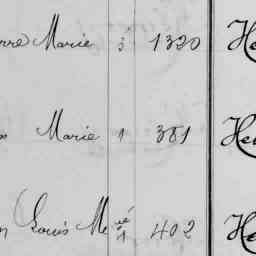 erre Marie 3 1320 He
Marie 1 381 He
n Louis M. ré 1 402 He